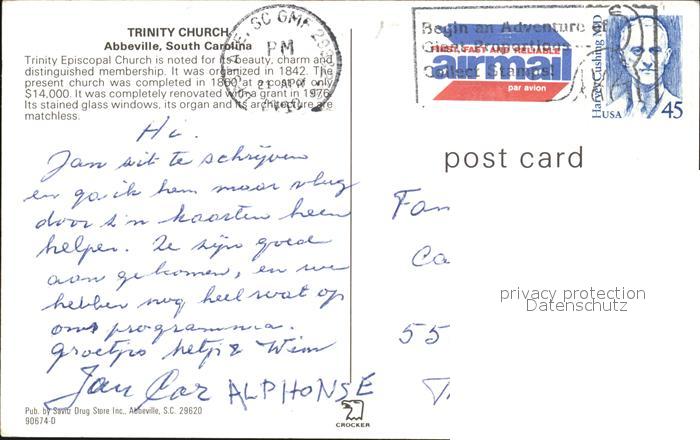 TRINITY CHURCH
Abbeville, South Carolina
Trinity Episcopal Church is noted for its beauty, charm and
distinguished membership. It was organized in 1842. The
present church was completed in 1860 at a cost of only
$14,000. It was completely renovated with a grant in 1976.
Its stained glass windows, its organ and its architecture are
matchless.
SC GMF 296
PM
21 APR
Begin an Adventure
Collect Stamps!
FIRST, FAST AND RELIABLE
airmail
par avion
Harvey Cushing, MD
USA 45
post card
Hi.
Jan zit te schrijven
en ga ik hem maar vlug
door z'n kaarten heen
helpen. Ze zijn goed
aangekomen, en we
hebben nog heel wat op
ons programma.
groetjes Wim
Jan Cor ALPHONSE
Fam
Ca
55
privacy protection
Datenschutz
Pub. by Savitz Drug Store Inc., Abbeville, S.C. 29620
90674-D
CROCKER